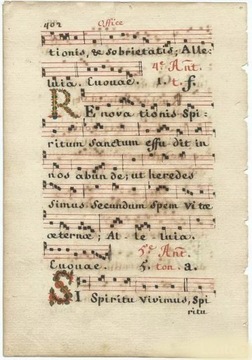 402 Office
tionis, & sobrietatis; Alle-
4.e Ant.
luia. Euouae. 1. t. f.
RE nova tionis Spi-
ritum sanctum effu dit in
nos abun de; ut heredes
simus secundum spem vitæ
æternæ; Al- le- luia.
5.e Ant.
Euouae. 5. ton. a.
SI Spiritu vivimus, Spi
ritu